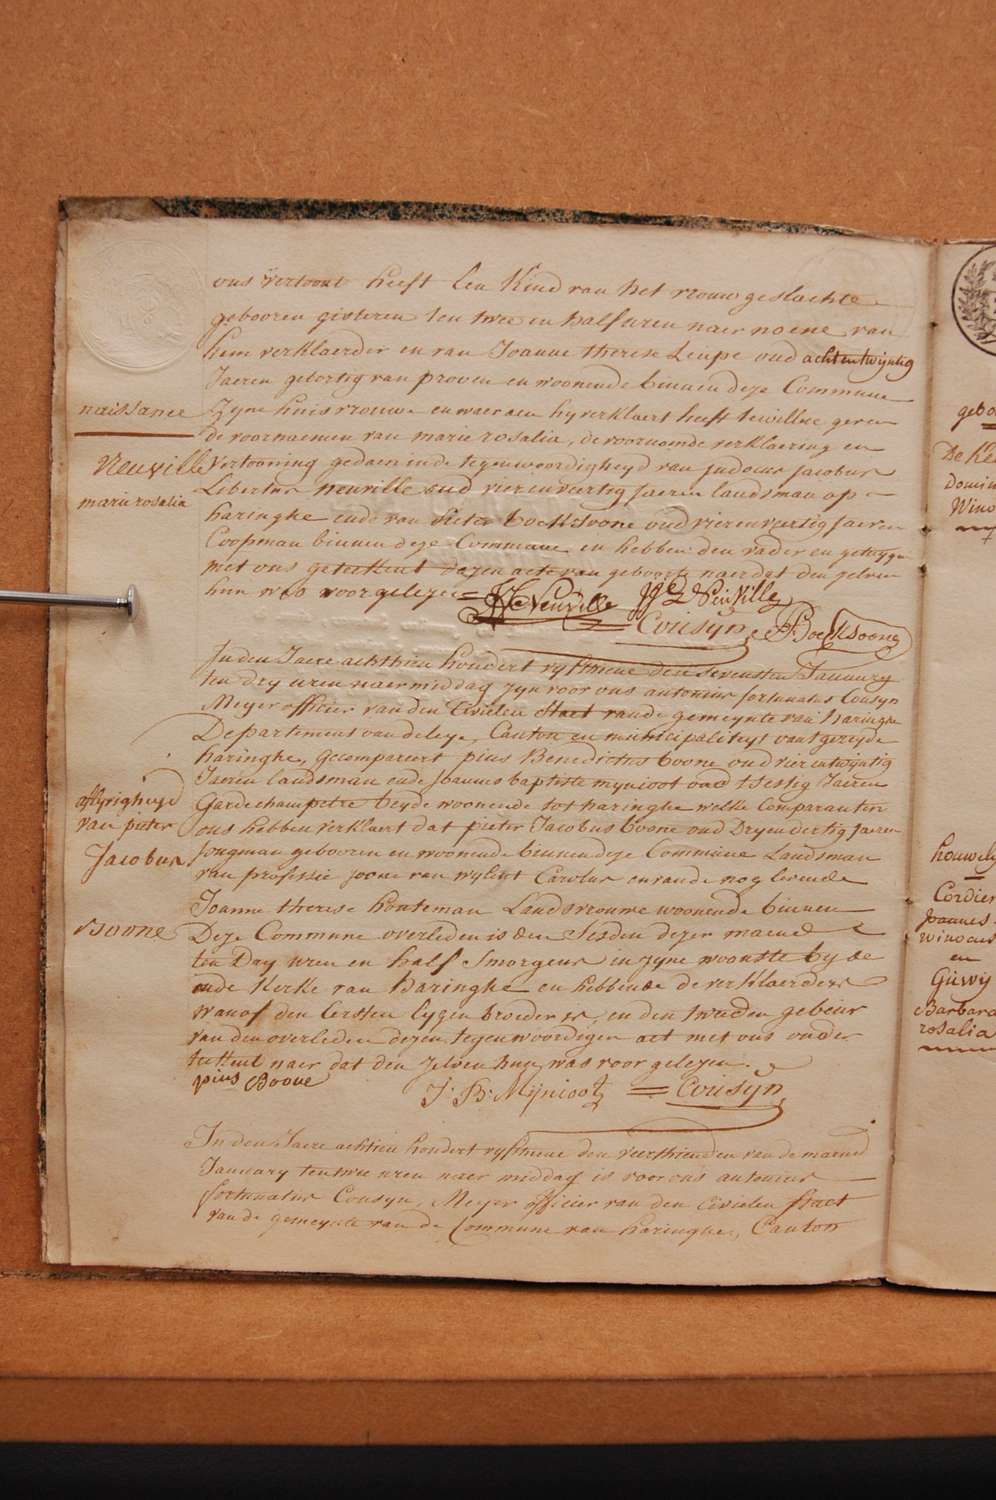 ons vertoont heeft een Kind van het vrouw geslachte
gebooren gisteren ten twee en half uren naer noene van
hem verklaerder en van Joanne therese Leupe oud achtentwijntig
Jaeren gebortig van proven en woonende binnen deze Commune
naissance
zyne huisvrouwe en waer aen hy verklaert heeft te willen geven
de voornaemen van marie rosalia, de voornomde verklaering en
Neuville
vertooning gedaen in de tegenwoordigheyd van Judocus Jacobus
marie rosalia
Libertus neuville oud vierenveertig Jaeren landsman op
haringhe ende van Pieter Boecksoone oud vierenveertig Jaeren
Coopman binnen deze Commune en hebben den vader en getuygen
met ons geteekent dezen acte van geboorte naer dat den zelven
hun was voorgelezen =
Neuville
Neuville
= Cousyn
Boecksoone
In den Jaere achthien hondert vyfthiene den sevensten January
ten dry uren naermiddag zyn voor ons antonius fortunatus Cousyn
Meyer officier van den Civielen Staet van de gemeynte van Haringhe
Departement van de leye, Canton en municipaliteyt van
haringhe, gecompareert pius Benedictus boone oud vierentwyntig
Jaeren landsman ende Joannes baptiste mynioot oud tsestig Jaeren
aflyvigheyd
Garde champetre beyde woonende tot haringhe welke Comparanten
van pieter
ons hebben verklaert dat pieter Jacobus boone oud Dryendertig Jaeren
Jacobus
Jongman gebooren en woonende binnen deze Commune Landsman
van professie zoone van wylent Carolus en van de nog levende
Joanne therese houteman Landsvrouwe woonende binnen
Boone
Deze Commune overleden is den Sesden dezer maend
ten Dry uren en half Smorgens in zyne woonste by de
Kerke van Haringhe en hebbende de verklaerders
wanof den Eersten eygen broeder is, en den tweeden gebeur
van den overleden dezen tegenwoordigen act met ons onder
teekent naer dat den zelven hun was voor gelezen.
pius Boone
J: B: Mynioot
= Cousyn
In den Jaere achtien hondert vyfthiene den vierthienden van de maend
January ten twee uren naer middag is voor ons antonius
fortunatus Cousyn, Meyer officier van den Civielen Staet
van de gemeynte van de Commune van haringhe, Canton
De
Domin
Wino
houwely
Cordier
Joannes
winocus
en
Guwy
Barbara
rosalia